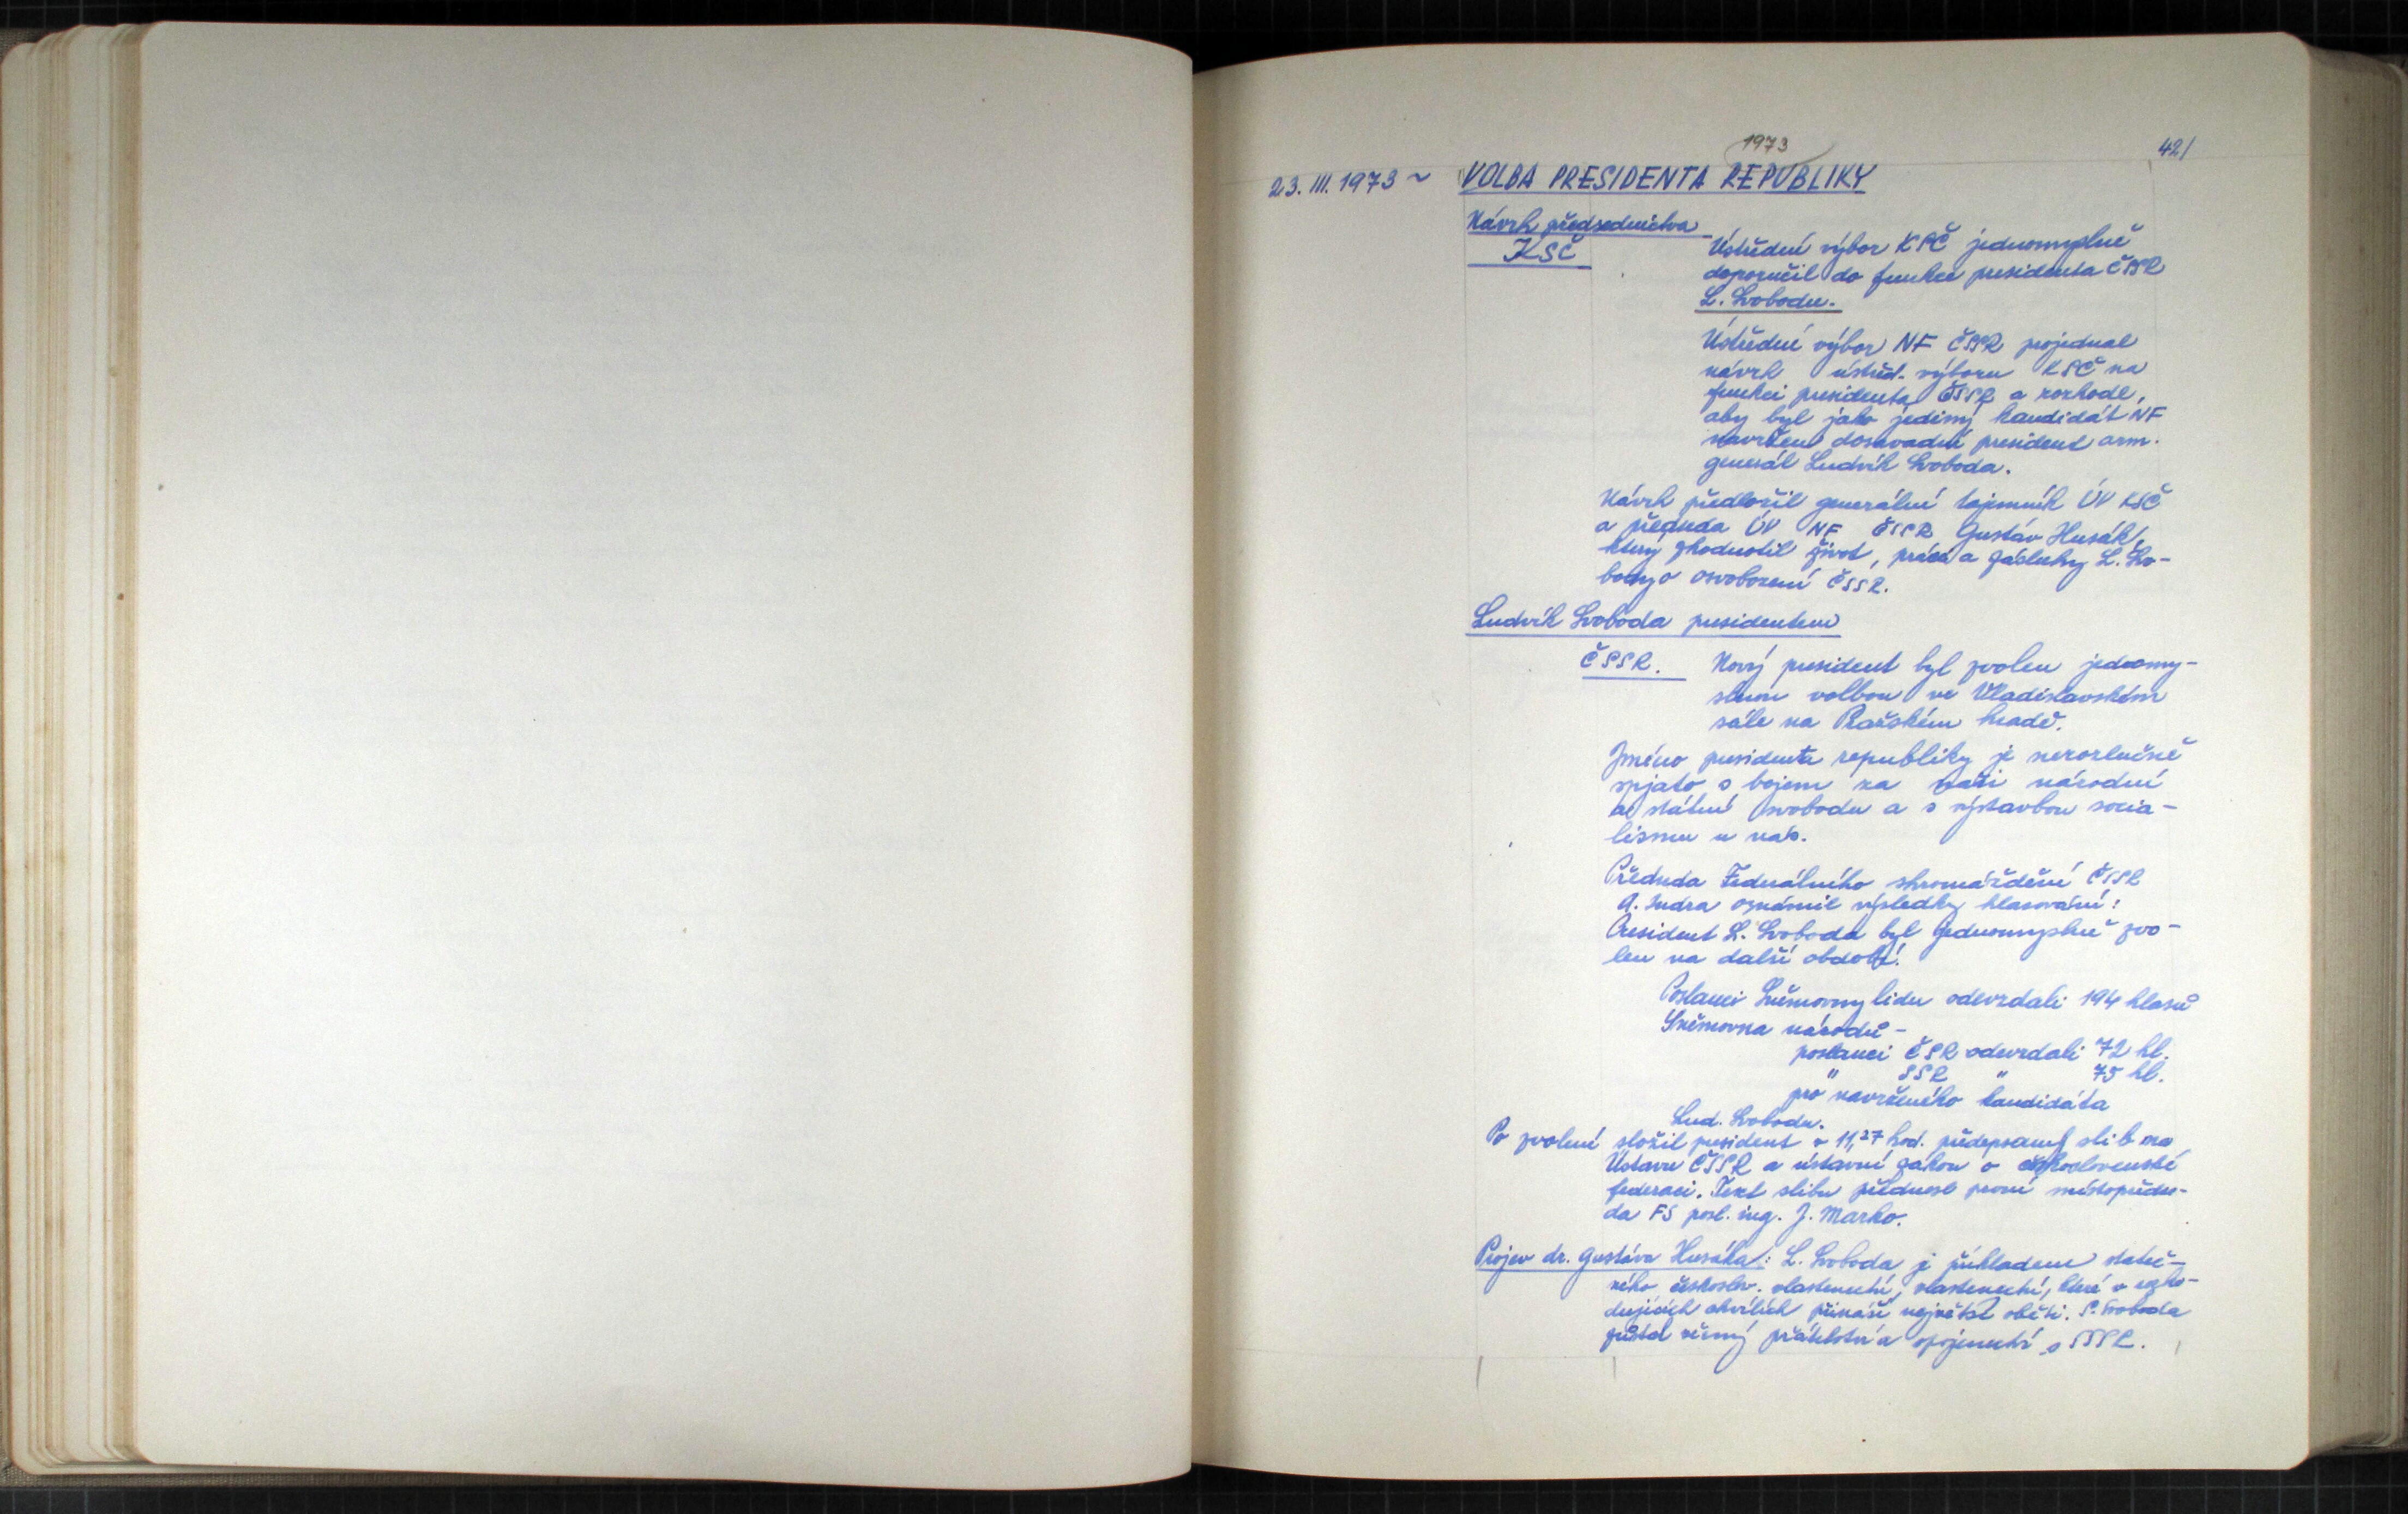 1973
42/
23. III. 1973 ~ VOLBA PRESIDENTA REPUBLIKY
Návrh předsednictva
KSČ
Ústřední výbor KSČ jednomyslně
doporučil do funkce presidenta ČSSR
L. Svobodu.
Ústřední výbor NF ČSSR projednal
návrh ústřed. výboru KSČ na
funkci presidenta ČSSR a rozhodl,
aby byl jako jediný kandidát NF
navržen dosavadní president arm.
generál Ludvík Svoboda.
Návrh předložil generální tajemník ÚV KSČ
a předseda ÚV NF ČSSR Gustáv Husák,
který zhodnotil život, práci a zásluhy L. Svo-
body o osvobození ČSSR.
Ludvík Svoboda presidentem
ČSSR. Nový president byl zvolen jednomy-
slnou volbou ve Vladislavském
sále na Pražském hradě.
Jméno presidenta republiky je nerozlučně
spjato s bojem za naši národní
a státní svobodu a s výstavbou socia-
lismu u nás.
Předseda Federálního shromáždění ČSSR
A. Indra oznámil výsledky hlasování:
President L. Svoboda byl jednomyslně zvo-
len na další období.
Poslanci Sněmovny lidu odevzdali 194 hlasů
Sněmovna národů -
poslanci ČSR odevzdali 72 hl.
" SSR " 75 hl.
pro navrženého kandidáta
Lud. Svobodu.
Po zvolení složil president v 11,27 hod. předepsaný slib na
Ústavu ČSSR a ústavní zákon o československé
federaci. Text slibu přednesl první místopředse-
da FS posl. ing. J. Marko.
Projev dr. Gustáva Husáka: L. Svoboda je příkladem stateč-
ného českoslov. vlastenectví, vlastenectví, které v rozho-
dujících chvílích přináší největší oběti. L. Svoboda
zůstal věrný přátelství a spojenectví s SSSR.